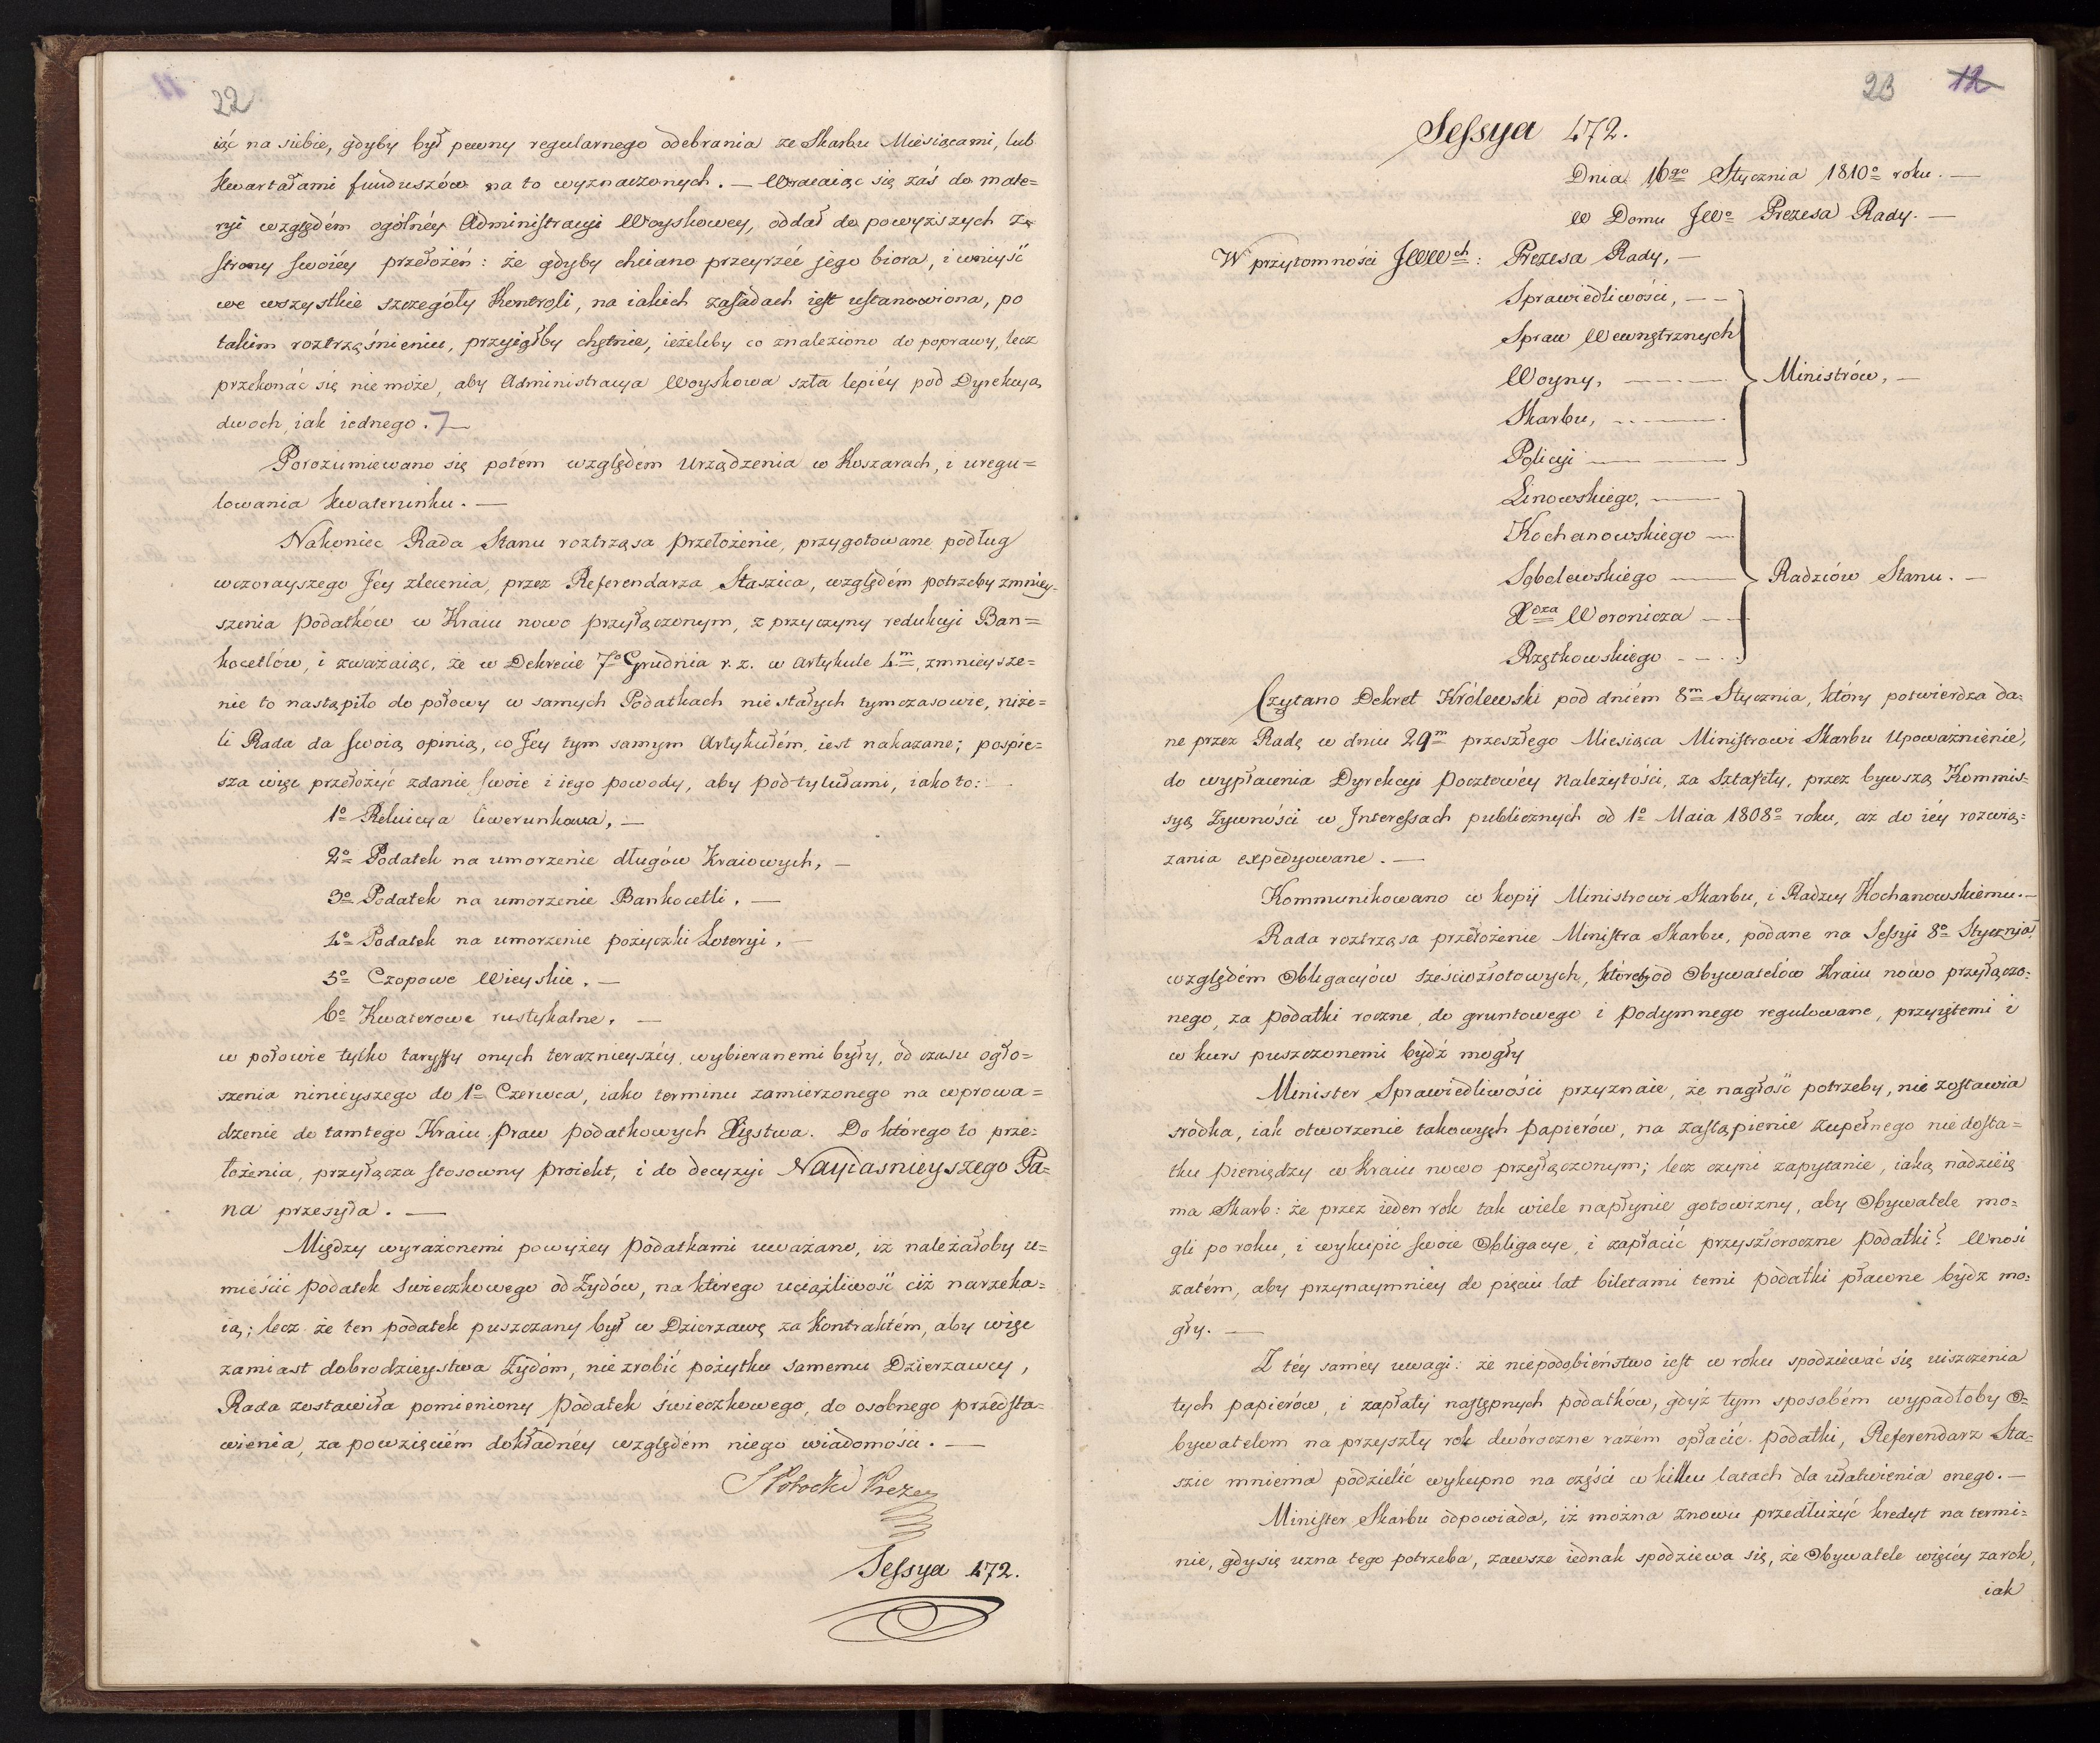 22
iąć na siebie, gdyby był pewny regularnego odebrania ze Skarbu Miesiącami, lub
Kwartałami funduszów na to wyznaczonych. — Wracaiąc się zaś do mate=
ryi względém ogólnéy Administracyi Woyskowey, oddał do powyższych ze
strony swoiéy przełożeń: że gdyby chciano przeyrzéć jego biora, i wniyść
we wszystkie szczegóły Kontroli, na iakich zasadach iest ustanowiona, po
takim roztrząśnieniu, przyiąłby chętnie, ieżeliby co znaleziono do poprawy, lecz
przekonać się nie może, aby Administracya Woyskowa szła lepiéy pod Dyrekcyą
dwoch, iak iednego. —
Porozumiewano się potém względem Urządzenia w Koszarach, i uregu=
lowania kwaterunku. —
Nakoniec Rada Stanu roztrząsa Przełożenie, przygotowane podług
wczorayszego Jéy zlecenia, przez Referendarza Staszica, względém potrzeby zmniey-
szenia Podatków w Kraiu nowo przyłączonym, z przyczyny redukcyi Ban=
kocetlów, i zważaiąc, że w Dekrecie 7º Grudnia r. z. w Artykule 4m, zmnieysze=
nie to nastąpiło do połowy w samych Podatkach niestałych tymczasowie, niże=
li Rada da swoią opinią, co Jéy tym samym Artykułém, iest nakazane; pospie=
sza więc przełożyć zdanie swoie i iego powody, aby pod tytułami, iako to: —
1º Reluicya liwerunkowa, —
2º Podatek na umorzenie długów Kraiowych, —
3º Podatek na umorzenie Bankocetli, —
4º Podatek na umorzenie pożyczki Loteryi, —
5º Czopowe Wieyskie. —
6º Kwaterowe rustykalne. —
w połowie tylko taryffy onych teraznieyszéy, wybieranemi były, od czasu ogło=
szenia ninieyszego do 1º Czerwca, iako terminu zamierzonego na wprowa=
dzenie do tamtego Kraiu Praw Podatkowych Xięstwa. Do którego to prze=
łożenia, przyłącza stosowny Proiekt, i do decyzyi Nayiasnieyszego Pa=
na przesyła. —
Między wyrażonemi powyżey Podatkami uważano, iż należałoby u=
mieścić podatek Swieczkowego od Żydów, na którego uciążliwość ciż narzeka=
ią; lecz że ten podatek puszczany był w Dzierzawę za Kontraktém, aby więc
zamiast dobrodzieystwa Żydóm, nie zrobić pożytku samemu Dzierzawcy,
Rada zostawiła pomieniony Podatek świeczkowego, do osobnego przedsta=
wienia, za powzięciém dokładnéy względém niego wiadomości. —
S Potocki Prezes
Sessya 472.
23 12
Sessya 472.
Dnia 16go Stycznia 1810º roku. —
W Domu JWº Prezesa Rady. —
W przytomności JWWch: Prezesa Rady, —
Sprawiedliwości, — —
Spraw Wewnętrznych
Woyny, — Ministrów, —
Skarbu, —
Policyi —
Linowskiego, —
Kochanowskiego —
Sobolewskiego — Radziów Stanu. —
Xdza Woronicza —
Rzętkowskiego —
Czytano Dekret Królewski pod dniém 8m Stycznia, który potwierdza da=
ne przez Radę w dniu 29m przeszłego Miesiąca Ministrowi Skarbu Upoważnienie,
do wypłacenia Dyrekcyi Pocztowéy Należytości, za Sztafety, przez bywszą Kommis=
syą Żywności w Interessach publicznych od 1º Maia 1808º roku, aż do iéy rozwią=
zania expedyowane. —
Kommunikowano w kopii Ministrowi Skarbu, i Radzcy Kochanowskiemu. —
Rada roztrząsa przełożenie Ministra Skarbu, podane na Sessyi 8º Stycznia
względém Obligacyów sześciozłotowych, któreby od Obywatelów Kraiu nowo przyłączo=
nego, za podatki roczne, do gruntowego i Podymnego regulowane, przyiętemi i
w kurs puszczonemi bydź mogły
Minister Sprawiedliwości przyznaie, że nagłość potrzeby, nie zostawia
srodka, iak otworzenie takowych papierów, na zastąpienie zupełnego niedosta=
tku Pieniędzy w Kraiu nowo przyłączonym; lecz czyni zapytanie, iaką nadzieię
ma Skarb: że przez ieden rok tak wiele napłynie gotowizny, aby Obywatele mo=
gli po roku, i wykupić swoie Obligacye, i zapłacić przyszłoroczne podatki? Wnosi
zatém, aby przynaymniey do pięciu lat biletami temi podatki pławne bydz mo=
gły. —
Z téy saméy uwagi: że niepodobieństwo iest w roku spodziewać się uiszczenia
tych papierów, i zapłaty następnych podatków, gdyż tym sposobém wypadłoby O=
bywatelom na przyszły rok dwóroczne razém opłacić podatki, Referendarz Sta=
szic mniema podzielić wykupno na części w kilku latach dla ułatwienia onego. —
Minister Skarbu odpowiada, iż można znowu przedłużyć kredyt na termi=
nie, gdy się uzna tego potrzeba, zawsze iednak spodziewa się, że Obywatele więcéy za rok,
iak